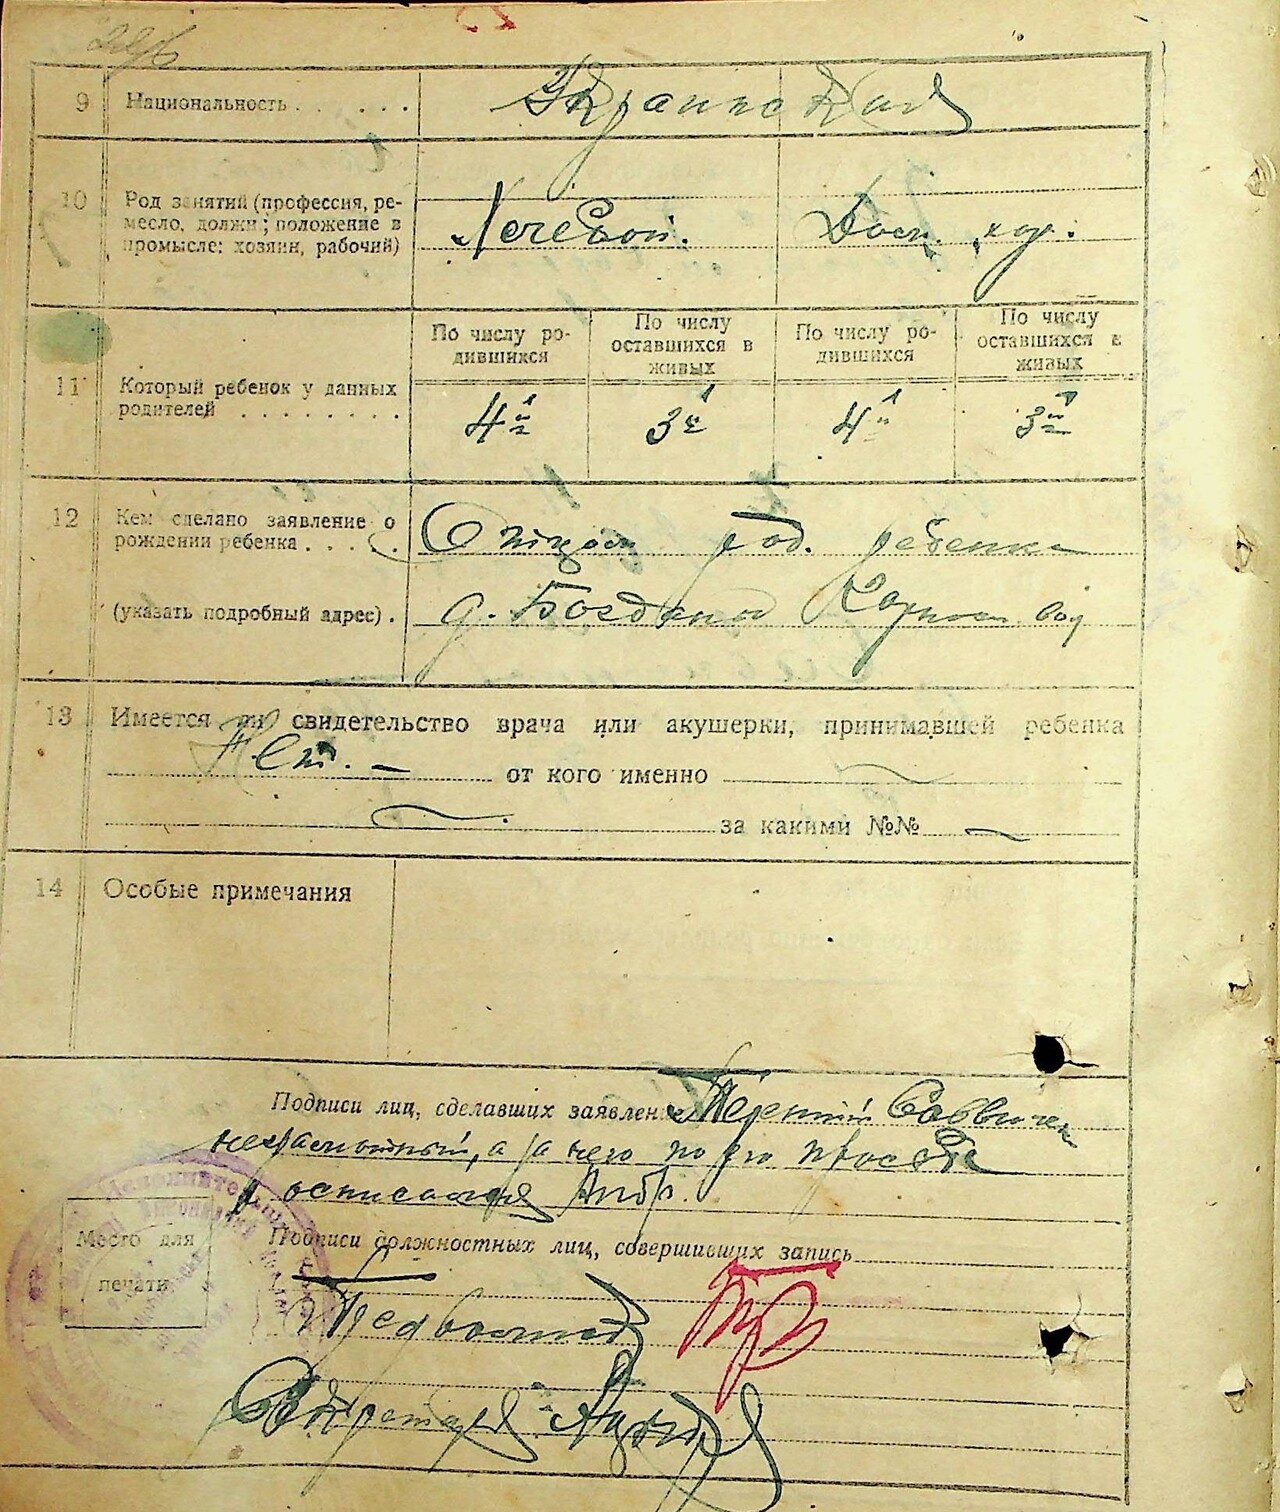 9 Национальность . . . . . Украинская
10 Род занятий (профессия, ре-
месло, должн; положение в
промысле: хозяин, рабочий)
Дом. хоз.
По числу ро-
дившихся
По числу
оставшихся в
живых
По числу ро-
дившихся
По числу
оставшихся в
живых
11 Который ребенок у данных
родителей . . . . . . . .
4й 3й 4й 3й
12 Кем сделано заявление о
рождении ребенка . . . . .
Отцом род. ребенка
(указать подробный адрес) .
д. Богдана
13 Имеется ли свидетельство врача или акушерки, принимавшей ребенка
Нет. – от кого именно
за какими №№ –
14 Особые примечания
Подписи лиц, сделавших заявление Терентий Саввичем
неграмотный, а за него по его просьбе
росписался
Подписи должностных лиц, совершивших запись
Место для
печати
Секретарь